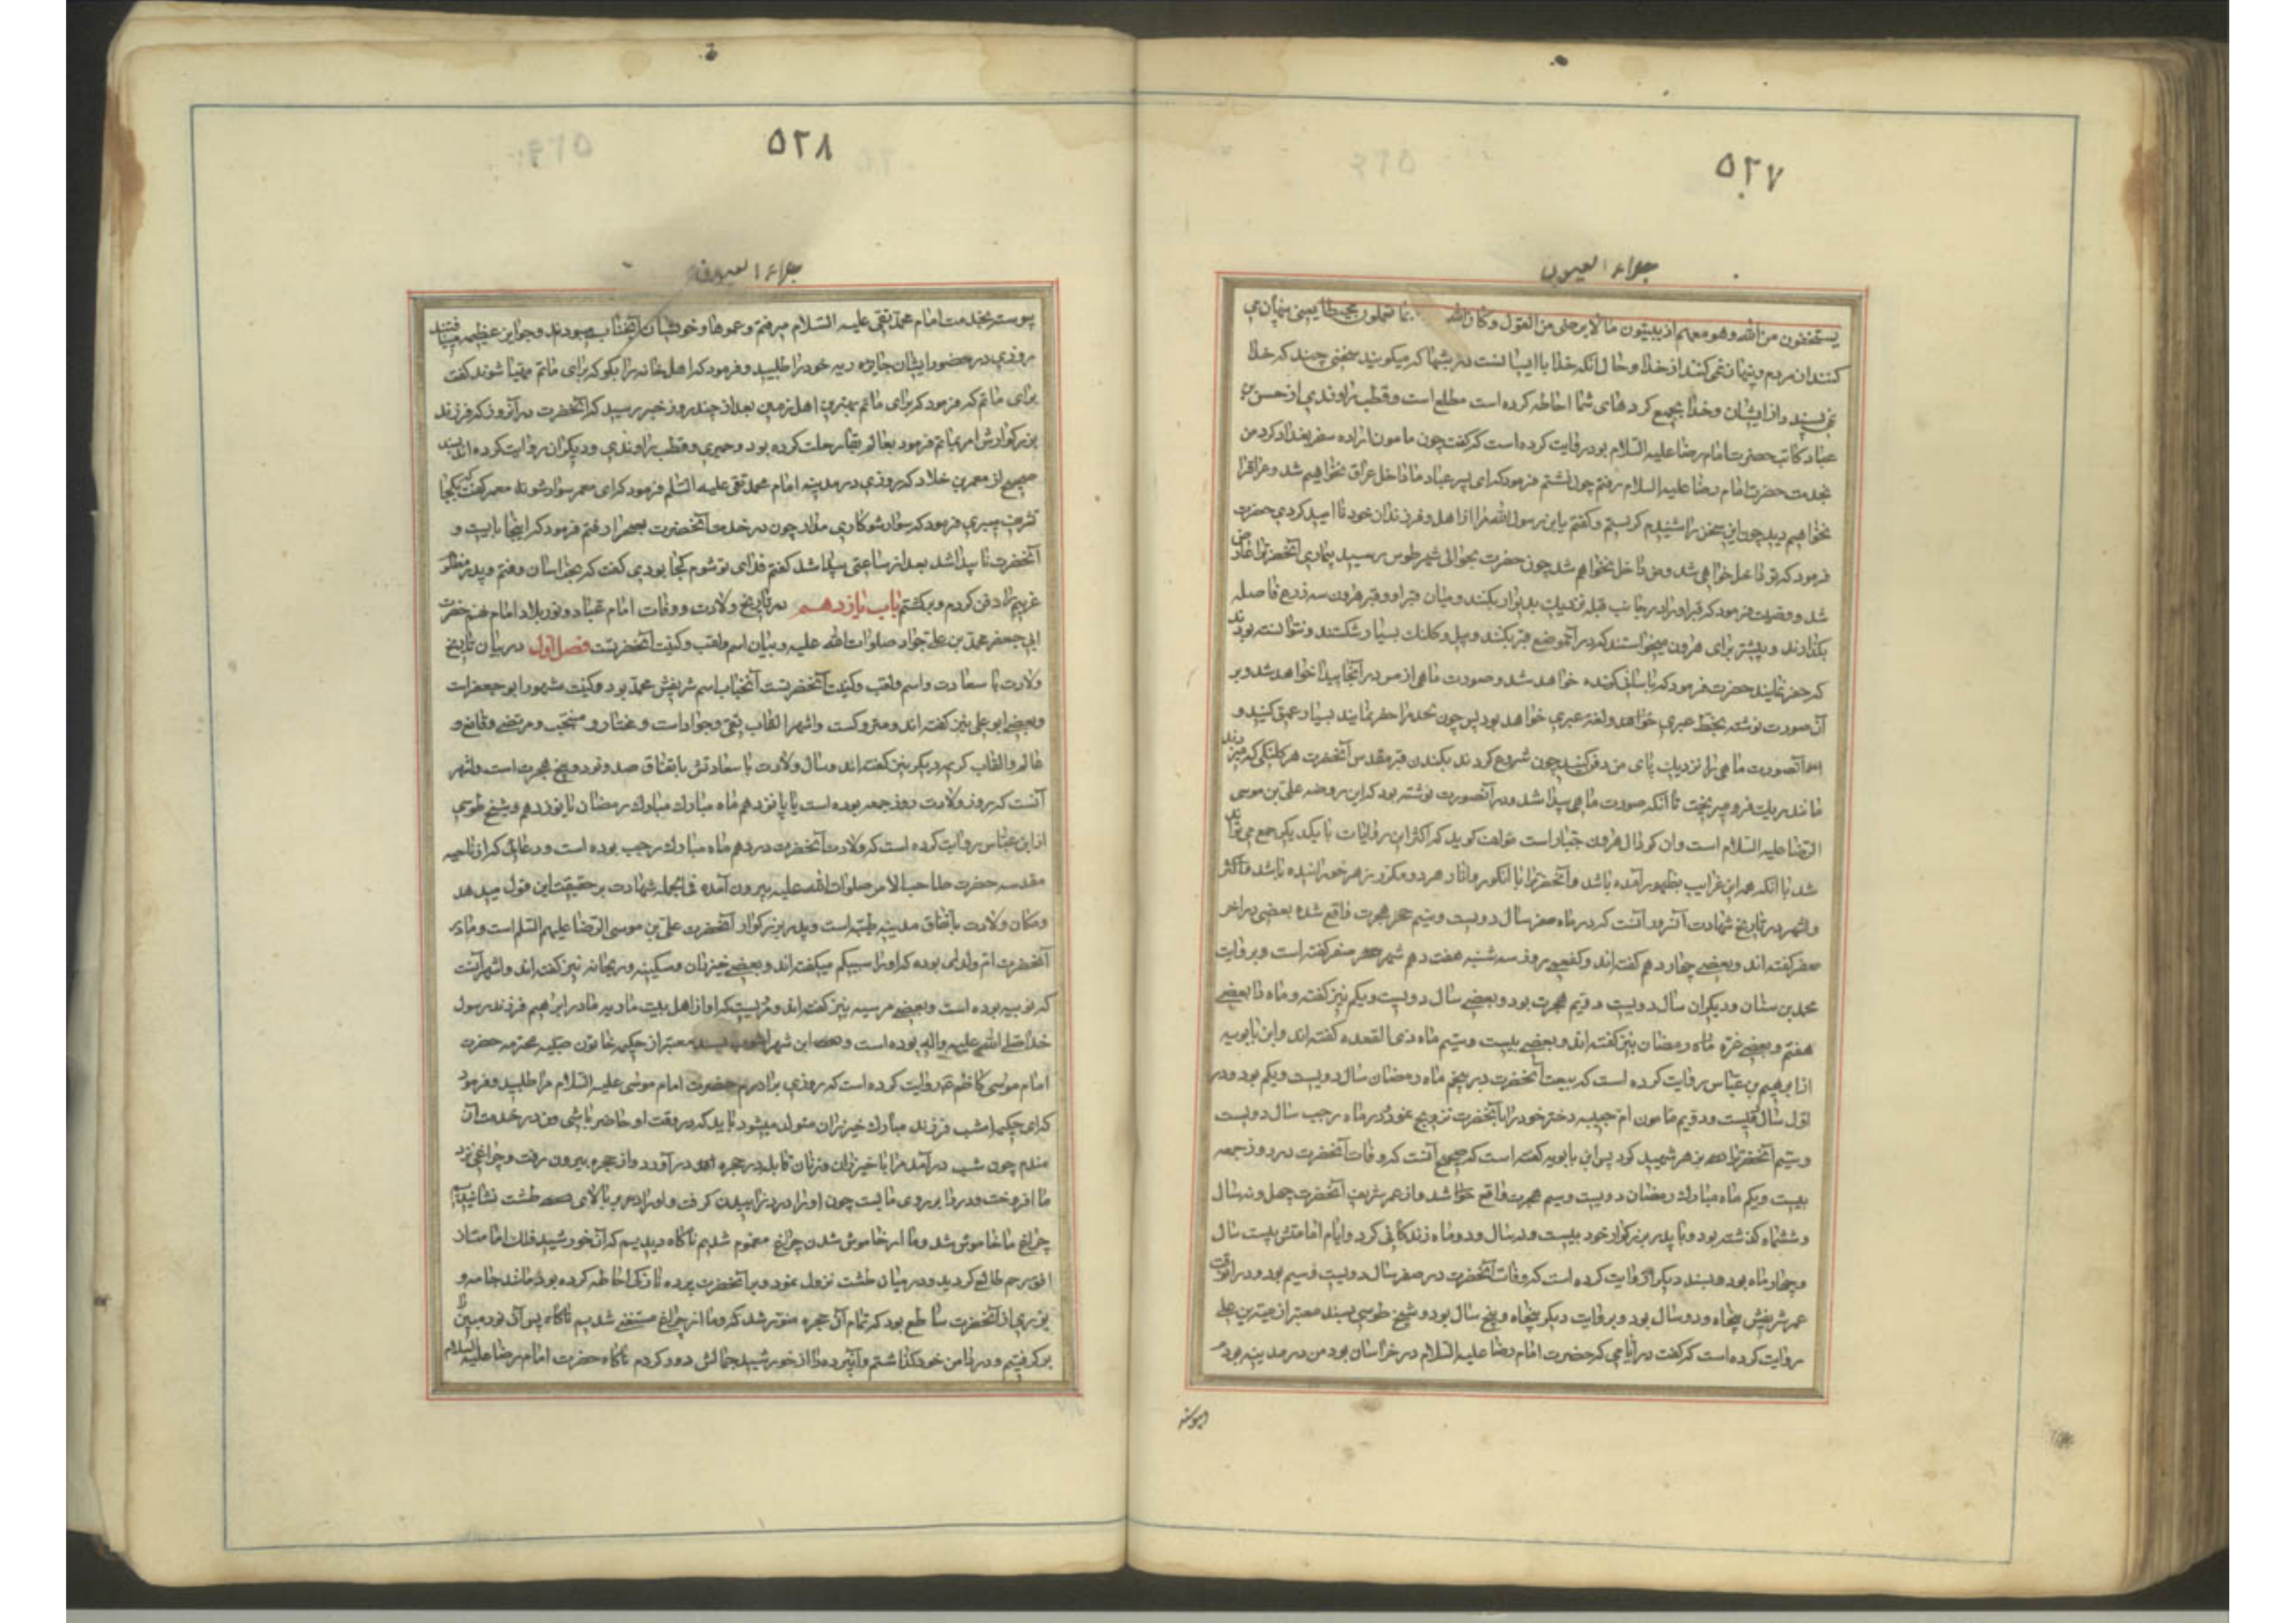 ٥٢٧
جلاء العیون
یستخفون من الله وهو معهم اذ یبیتون ما لا یرضی من القول وکان الله بما تعملون محیطا یعنی پنهان می
کنند از مردم و پنهان نمی کنند از خدا و حال آنکه خدا با ایشانست در شبها که میگویند سخنی چند که خدا
نمی پسندد از ایشان و خدا بجمیع کردهای شما احاطه کرده است مطلع است و قطب راوندی از حسن بن
عباد کاتب حضرت امام رضا علیه السلام بود روایت کرده است که گفت چون مامون اراده سفر بغداد کرد من
بخدمت حضرت امام رضا علیه السلام رفتم چون نشستم فرمود که ای پسر عباد ما داخل عراق نخواهیم شد و عراق را
نخواهیم دید چون این سخن را شنیدم گریستم و گفتم یا ابن رسول الله مرا از اهل و فرزندان خود ناامید کردی حضرت
فرمود که تو داخل خواهی شد و من داخل نخواهم شد چون حضرت بحوالی شهر طوس رسید بیماری آنحضرت را عارض
شد و وصیت فرمود که قبر او را در جانب قبله نزدیک بدیوار بکنند و میان قبر او و قبر هرون سه ذرع فاصله
بگذارند و پیشتر برای هرون میخواستند که در آنموضع قبر بکنند و بیل و کلنک بسیار شکستند و نتوانسته بودند
که حفر نمایند حضرت فرمود که بآسانی کنده خواهد شد و صورت ماهی از مس در آنجا پیدا خواهد شد و بر
آن صورت نوشته بخط عبری خواهد و لغت عبری خواهد بود پس چون لحد مرا حفر نمایند بسیار عمیق کنید و
آنصورت ماهی را نزدیک پای من دفن کنید چون شروع کردند بکندن قبر مقدس آنحضرت هر کلنکی که میزدند
مانند ریک فرو میریخت تا آنکه صورت ماهی پیدا شد و در آنصورت نوشته بود که این روضه علی بن موسی
الرضا علیه السلام است و آن گودال هرون جبار است مؤلف گوید که اکثر این روایات با یکدیگر جمع می توا
شد با آنکه همه این غرایب بظهور آمده باشد و آنحضرت را با انگور و انار هر دو مکرر زهر خورانیده باشد و اکثر
و اشهر در تاریخ شهادت آنسرور آنست که در ماه صفر سال دویست و سیم هجرت واقع شده بعضی در آخر
صفر گفته اند و بعضی چهاردهم گفته اند و کفعمی روز سه شنبه هفت دهم شهر صفر گفته است و بروایت
محمد بن سنان و دیگران سال دویست و دویم هجرت بود و بعضی سال دویست و یکم نیز گفته و ماه را بعضی
هفتم و بعضی غره ماه رمضان نیز گفته اند و بعضی بیست و سیم ماه ذی القعده گفته اند و ابن بابویه
از ابرهیم بن عباس روایت کرده است که بیعت آنحضرت در پنجم ماه رمضان سال دویست و یکم بود و در
اول سال دویست و دویم مامون ام حبیبه دختر خود را با آنحضرت تزویج نمود و در ماه رجب سال دویست
و سیم آنحضرت را بزهر شهید کرد پس ابن بابویه گفته است که صحیح آنست که وفات آنحضرت در روز جمعه
بیست و یکم ماه مبارک رمضان دویست و سیم هجرت واقع شد و از عمر شریف آنحضرت چهل و نه سال
و ششماه گذشته بود و با پدر بزرگوار خود بیست و نه سال و دو ماه زندگانی کرد و ایام امامتش بیست سال
و چهار ماه بود و بسند دیگر روایت کرده است که وفات آنحضرت در صفر سال دویست و سیم بود و در آنوقت
عمر شریفش پنجاه و دو سال بود و بروایت دیگر پنجاه و پنج سال بود و شیخ طوسی بسند معتبر از میه بن علی
روایت کرده است که گفت در ایامی که حضرت امام رضا علیه السلام در خراسان بود من در مدینه بودم
پیوسته
٥٢٨
جلاء العیون
پیوسته بخدمت امام محمد تقی علیه السلام میرفتم و عموها و خویشان آنجناب
روزی در حضور ایشان جاریه خود را طلبید و فرمود که اهل خانه را بگو که برای ماتم مهیا شوند گفت
برای ماتم که فرمود که برای ماتم بهترین اهل زمین بعد از چند روز خبر رسید که آنحضرت در آنروز که فرزند
بزرگوارش امر بماتم فرمود بعالم بقا رحلت کرده بود و حمیری و قطب راوندی و دیگران روایت کرده اند بسند
صحیح از معمر بن خلاد که روزی در مدینه امام محمد تقی علیه السلم فرمود که ای معمر سوار شو معمر گفت بکجا
تشریف میبری فرمود که سوار شو کاری مدار چون در خدمت آنحضرت بصحرا رفتم فرمود که اینجا بایست و
آنحضرت ناپیدا شد بعد از ساعتی پیدا شد گفتم فدای تو شوم کجا بودی گفت که بخراسان رفتم و پدر مظلو
غریبم را دفن کردم و برگشتم باب یازدهم در تاریخ ولادت و وفات امام عباد و نور بلاد امام نهم حضرت
ابی جعفر محمد بن علی جواد صلوات الله علیه و بیان اسم و لقب و کنیت آنحضرتست فصل اول در بیان تاریخ
ولادت با سعادت و اسم و لقب و کنیت آنحضرتست آنجناب اسم شریفش محمد بود و کنیت مشهور ابو جعفر است
و بعضی ابو علی نیز گفته اند و متروکست و اشهر القاب تقی و جواد است و مختار و منتجب و مرتضی و قانع و
عالم و القاب کریمه دیگر نیز گفته اند و سال ولادت با سعادتش باتفاق صد و نود و پنج هجرت است و اشهر
آنست که روز ولادت روز جمعه بوده است یا پانزدهم ماه مبارک مبارک رمضان یا نوزدهم و شیخ طوسی
از ابن عباس روایت کرده است که ولادت آنحضرت در دهم ماه مبارک رجب بوده است و دعائی که از ناحیه
مقدسه حضرت صاحب الامر صلوات الله علیه بیرون آمده فی الجمله شهادت بر حقیقت این قول میدهد
و مکان ولادت باتفاق مدینه طیبه است و پدر بزرگوار آنحضرت علی بن موسی الرضا علیهم السلم است و مادر
آنحضرت ام ولدی بوده که او را سبیکه میگفته اند و بعضی خیزران و سکینه و ریحانه نیز گفته اند و اشهر آنست
که نوبیه بوده است و بعضی مریسیه نیز گفته اند و مرویست که او از اهل بیت ماریه مادر ابراهیم فرزند رسول
خدا صلی الله علیه و آله بوده است و ابن شهر آشوب بسند معتبر از حکیمه خاتون صبیه محترمه حضرت
امام موسی کاظم ع روایت کرده است که روزی برادرم حضرت امام موسی علیه السلام مرا طلبید و فرمود
که ای حکیمه امشب فرزند مبارک خیزران متولد میشود باید که در وقت او حاضر باشی من در خدمت آن
ماندم چون شب در آمد مرا با خیزران و زنان قابله در حجره در آورد و از حجره بیرون رفت و چراغی نزد
ما افروخت و در را بر روی ما بست چون او را درد زاییدن گرفت و او را بر بالای طشت نشانیدیم
چراغ ما خاموش شد و ما از خاموش شدن چراغ مغموم شدیم ناگاه دیدیم که آن خورشید فلک امامت از
افق رحم طالع گردید و در میان طشت نزول نمود و بر آنحضرت پرده نازکی احاطه کرده بود مانند جامه و
نوری از آنحضرت ساطع بود که تمام آن حجره منور شد که و ما از چراغ مستغنی شدیم ناگاه پس آن نور مبین را
بر گرفتیم و در دامن خود گذاشتم و آن پرده را از خورشید جمالش دور کردم ناگاه حضرت امام رضا علیه السلام